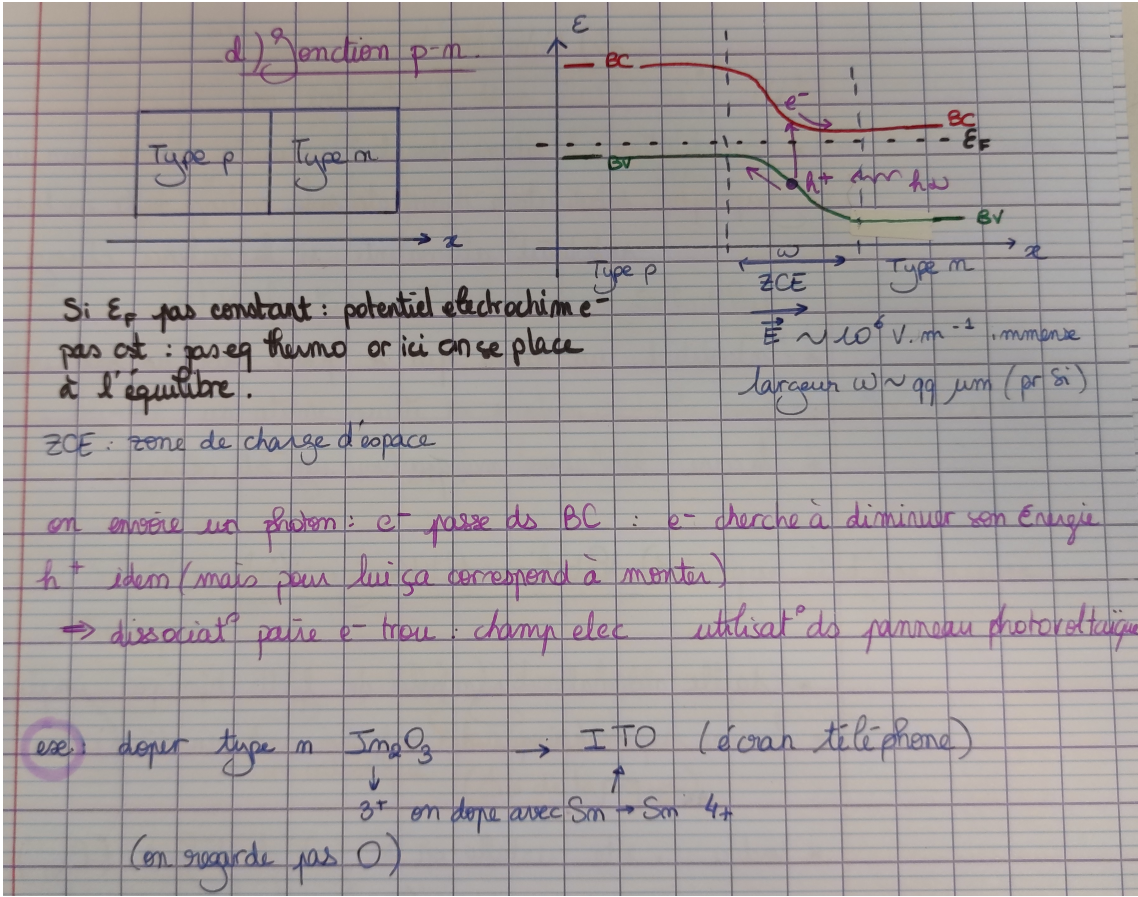 d) Jonction p-n.
Type p
Type n
x
ε
BC
e-
BC
εF
BV
h+
ħω
BV
x
Type p
ω
ZCE
Type n
Si εF pas constant : potentiel electrochim e-
pas cst : pas eq thermo or ici on se place
à l'équilibre.
E ~ 10⁶ V.m⁻¹ immense
largeur ω ~ qq μm (pr Si)
ZCE : zone de charge d'espace
on envoie un photon : e- passe ds BC : e- cherche à diminuer son Energie
h+ idem (mais pour lui ça correspond à monter)
⇒ dissociat° paire e- trou : champ elec utilisat° ds panneau photovoltaïque
exe : doper type n In₂O₃ → ITO (écran téléphone)
↓ ↑
3+ on dope avec Sn → Sn 4+
(on regarde pas O)